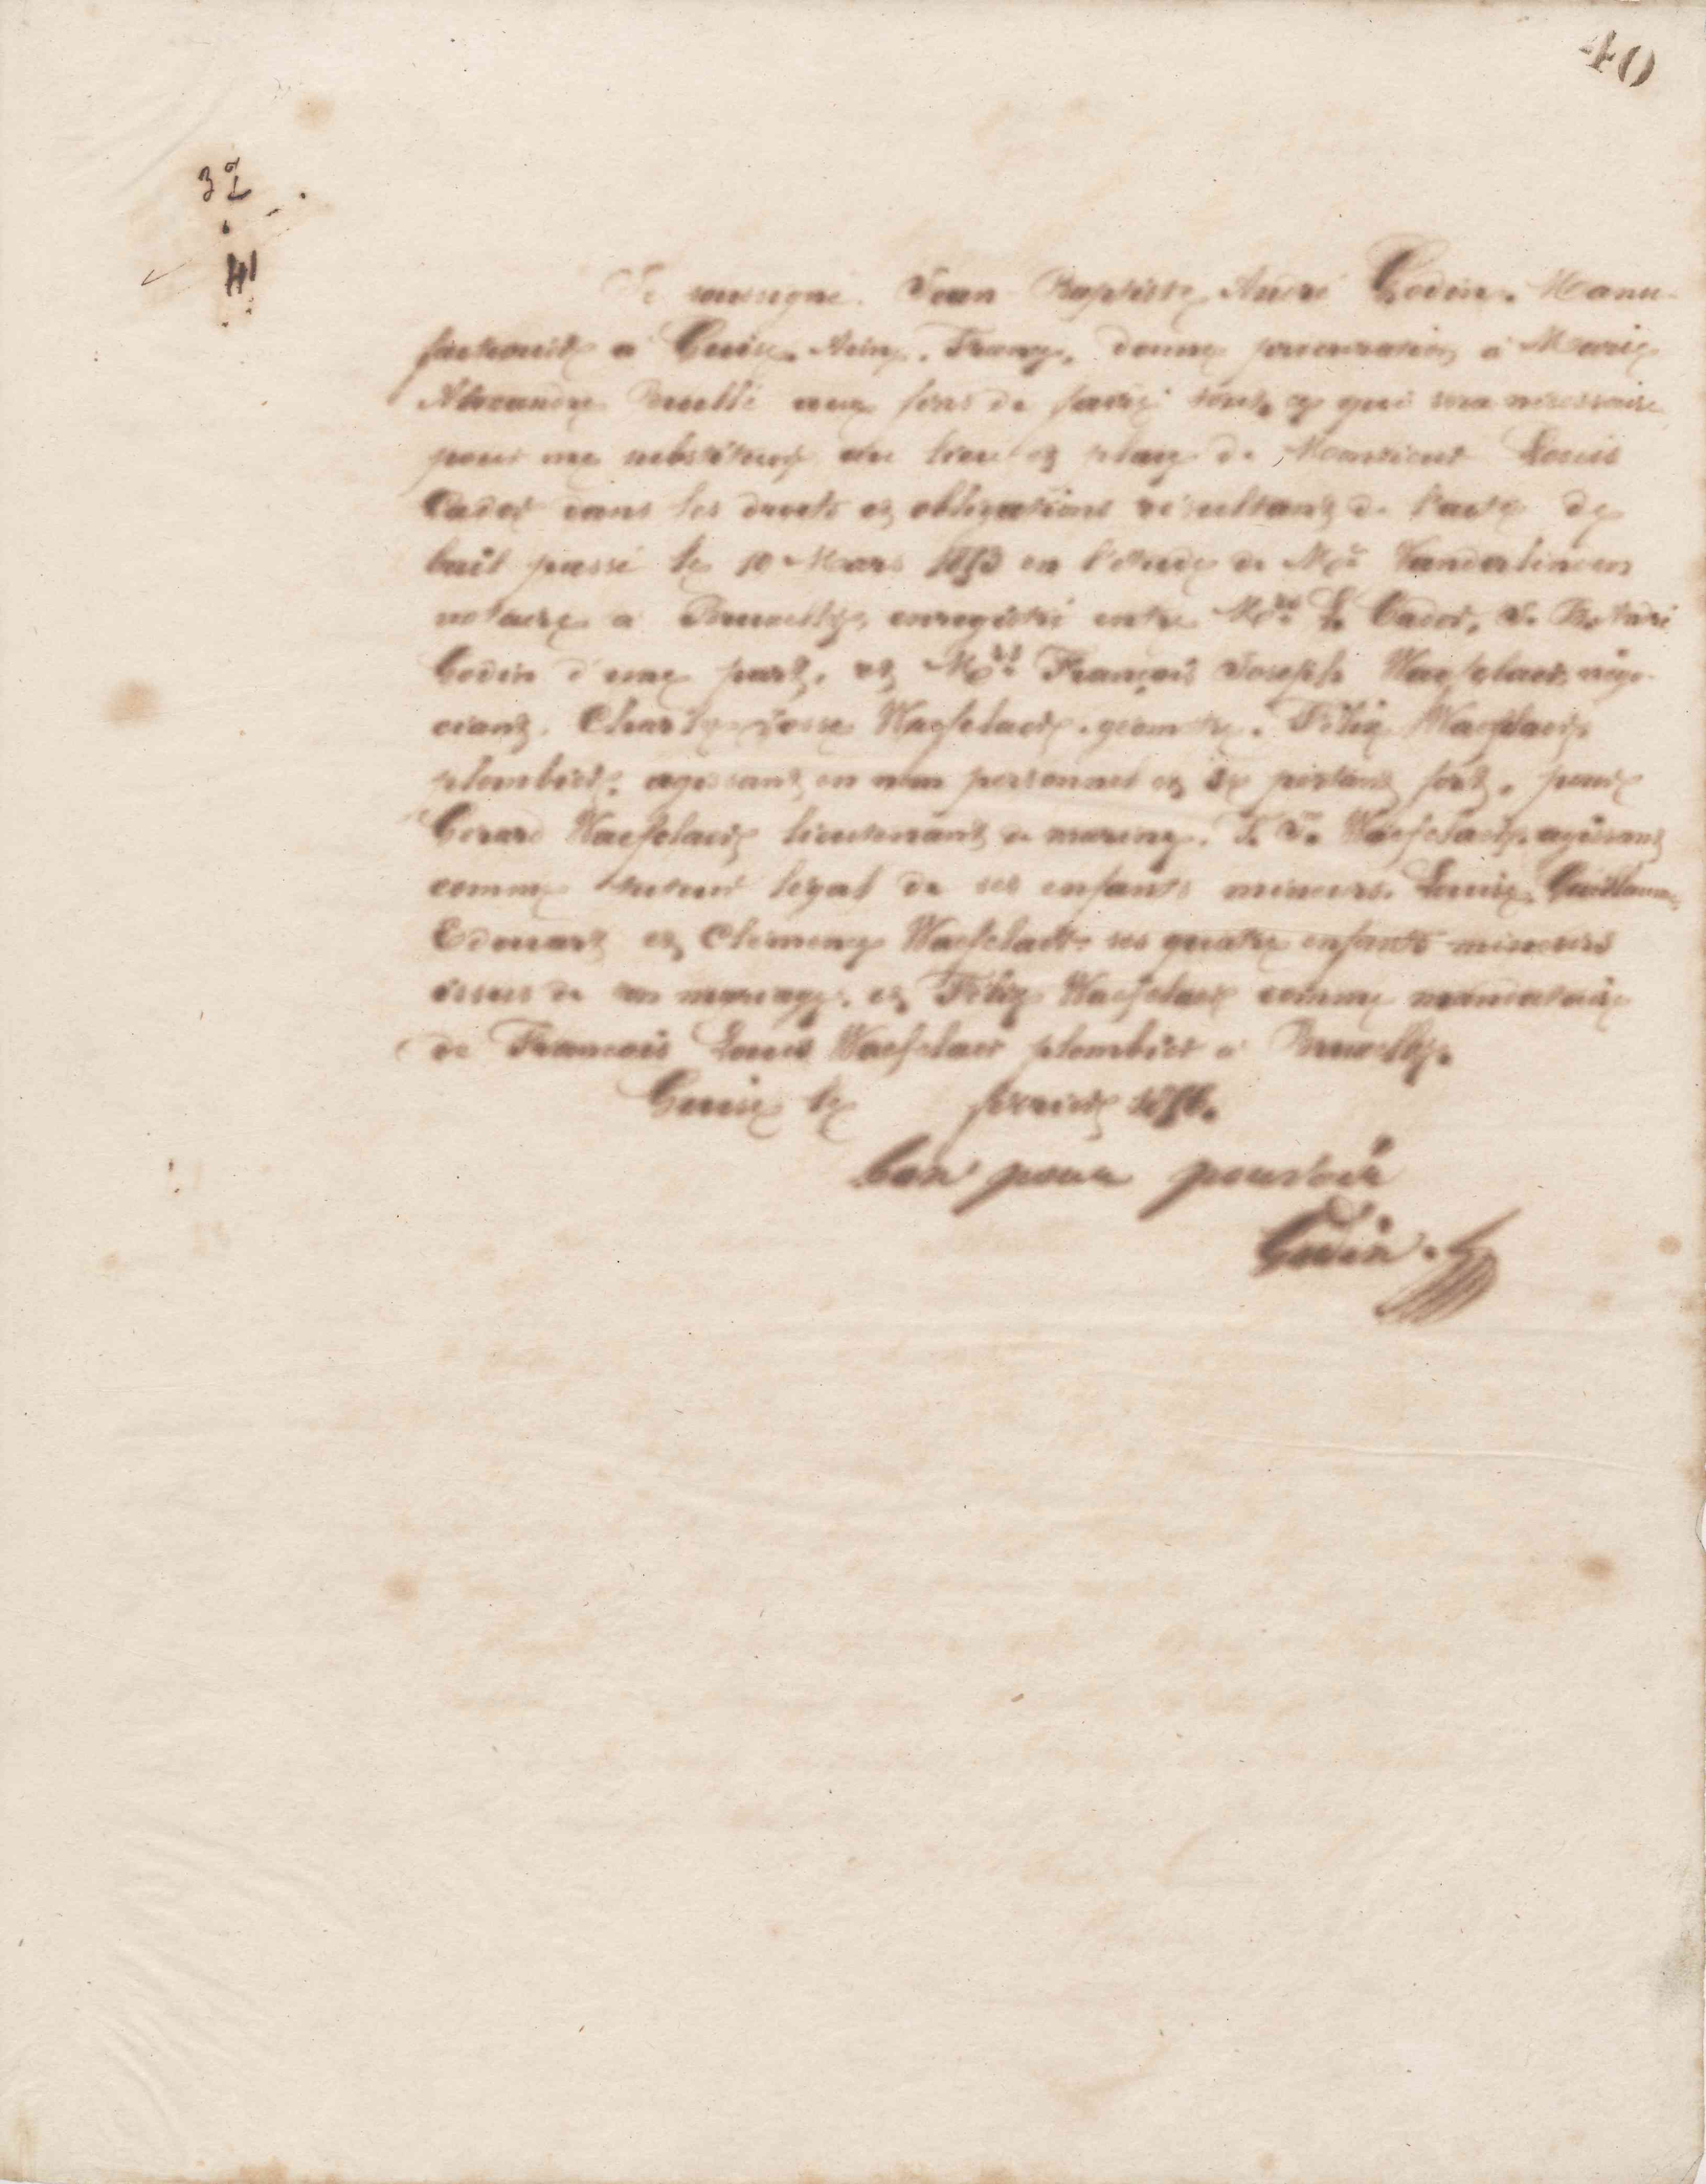 40
32
41
Je soussigné Jean Baptiste André Godin. Manu-
facturier à Guise. Aisne. France, donne procuration à Marie
Alexandre aux fins de faire tout ce qui sera nécessaire
pour me substituer au lieu et place de Monsieur Louis
Cador dans les droits et obligations résultant de l'acte de
bail passé le 10 Mars en l'étude de Me Vanderlinden
notaire à Bruxelles, enregistré entre Mrs L. Cador,
Godin d'une part, et Mrs François Joseph Waefelaer, négo-
ciant. Charles Josse Waefelaer, géomètre. Félix Waefelaer
plombier, agissant en nom personnel et se portant fort, pour
Gérard Waefelaer lieutenant de marine. Waefelaer agissant
comme tuteur légal de ses enfants mineurs. Louise, Guillaume
Edouard et Clémence Waefelaer ses quatre enfants mineurs
issus de son mariage. et Félix Waefelaer comme mandataire
de François Louis Waefelaer plombier à Bruxelles.
Guise le février
bon pour pouvoir
Godin